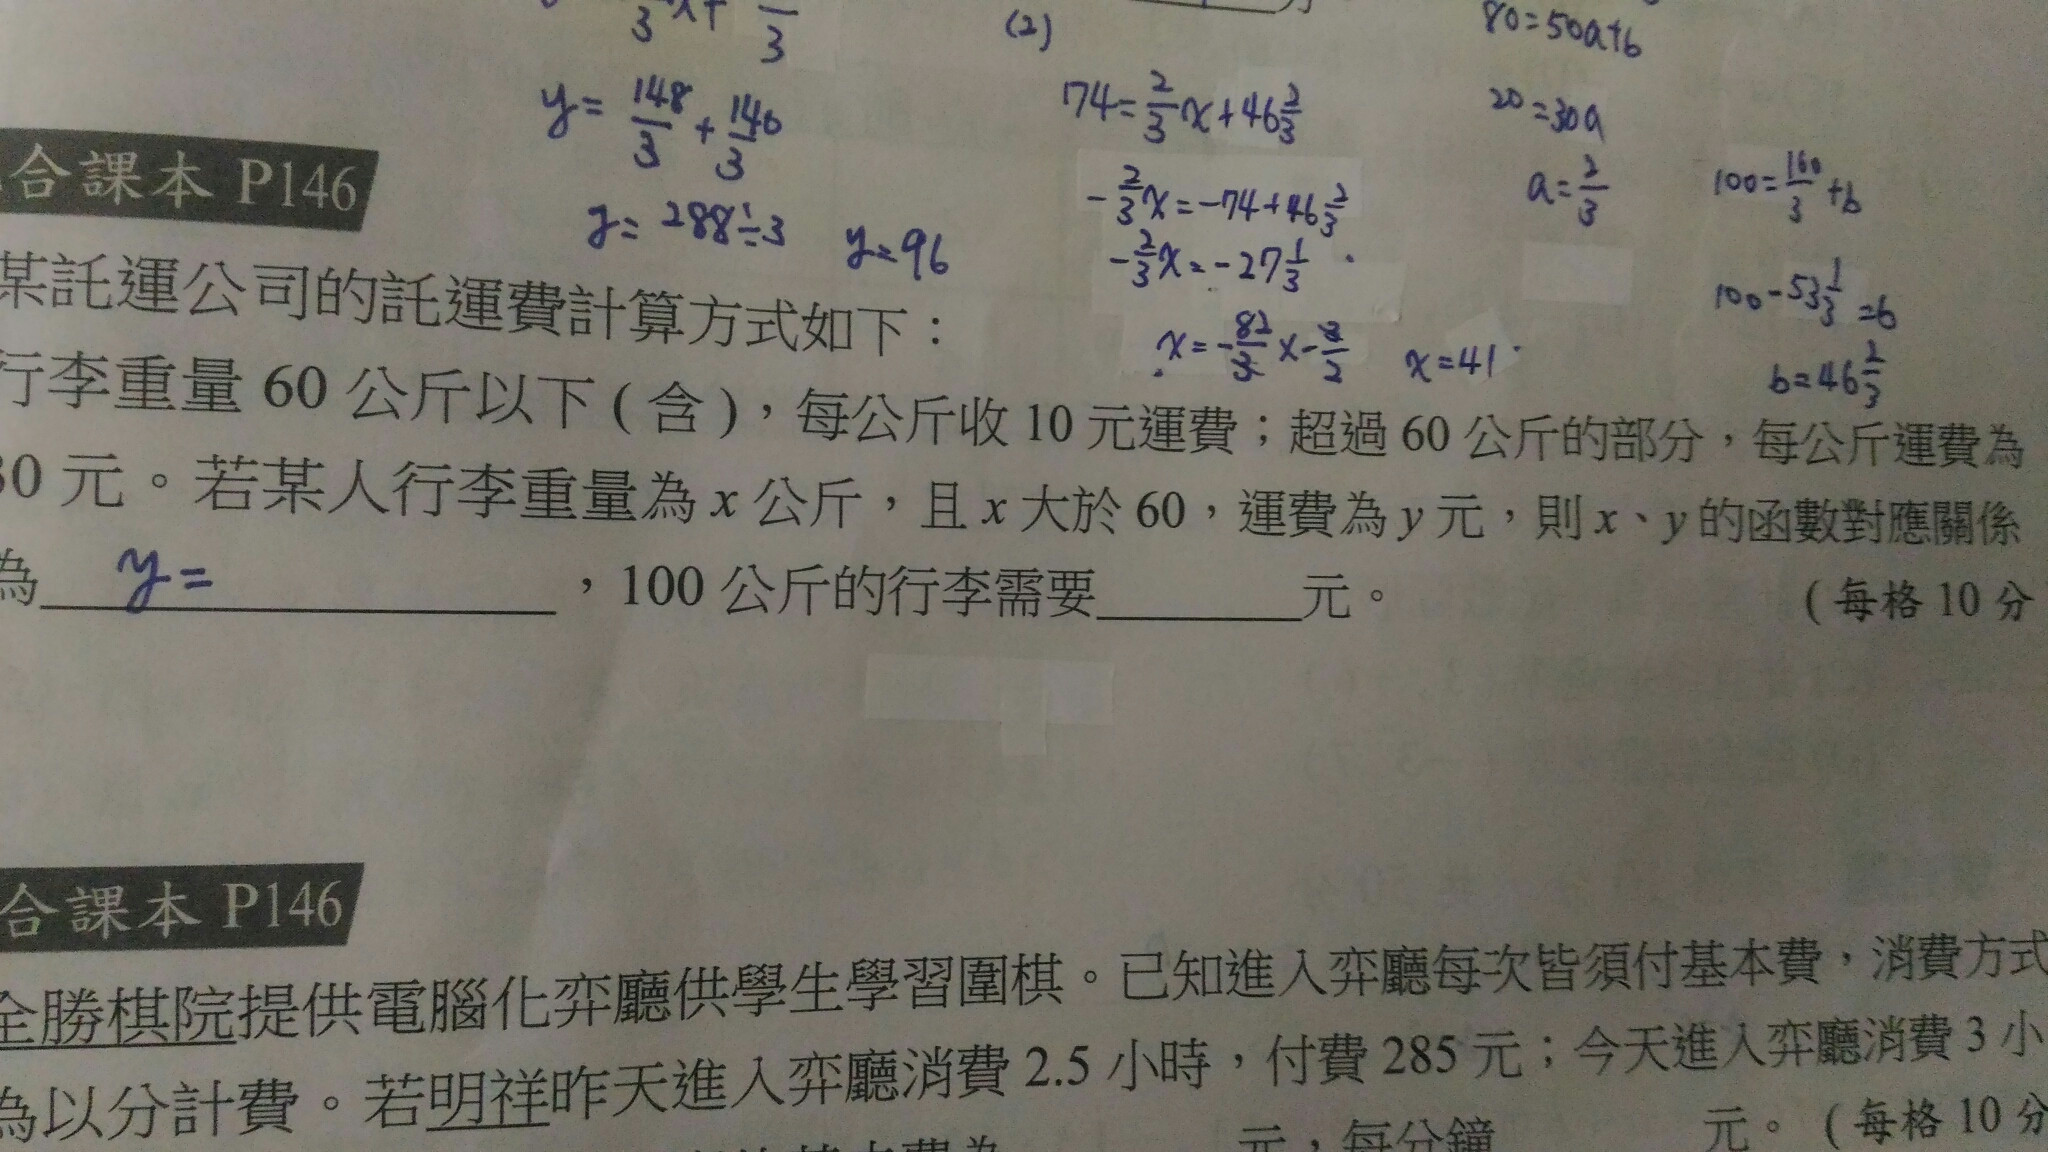 (2)
80=50a+b
y= 148/3 + 140/3
74= 2/3 x+46 2/3
20=30a
合課本 P146
- 2/3 x=-74+46 2/3
a= 2/3
100= 160/3 +b
y= 288÷3 y=96
- 2/3 x=-27 1/3
100-53 1/3 =b
某託運公司的託運費計算方式如下：
x=- 82/3 x- 3/2 x=41
b=46 2/3
行李重量 60 公斤以下（含），每公斤收 10 元運費；超過 60 公斤的部分，每公斤運費為
30 元。若某人行李重量為 x 公斤，且 x 大於 60，運費為 y 元，則 x、y 的函數對應關係
為 y= ，100 公斤的行李需要______元。 （每格 10 分
合課本 P146
全勝棋院提供電腦化弈廳供學生學習圍棋。已知進入弈廳每次皆須付基本費，消費方式
為以分計費。若明祥昨天進入弈廳消費 2.5 小時，付費 285 元；今天進入弈廳消費 3 小
基本費為 元，每分鐘 元。（每格 10 分